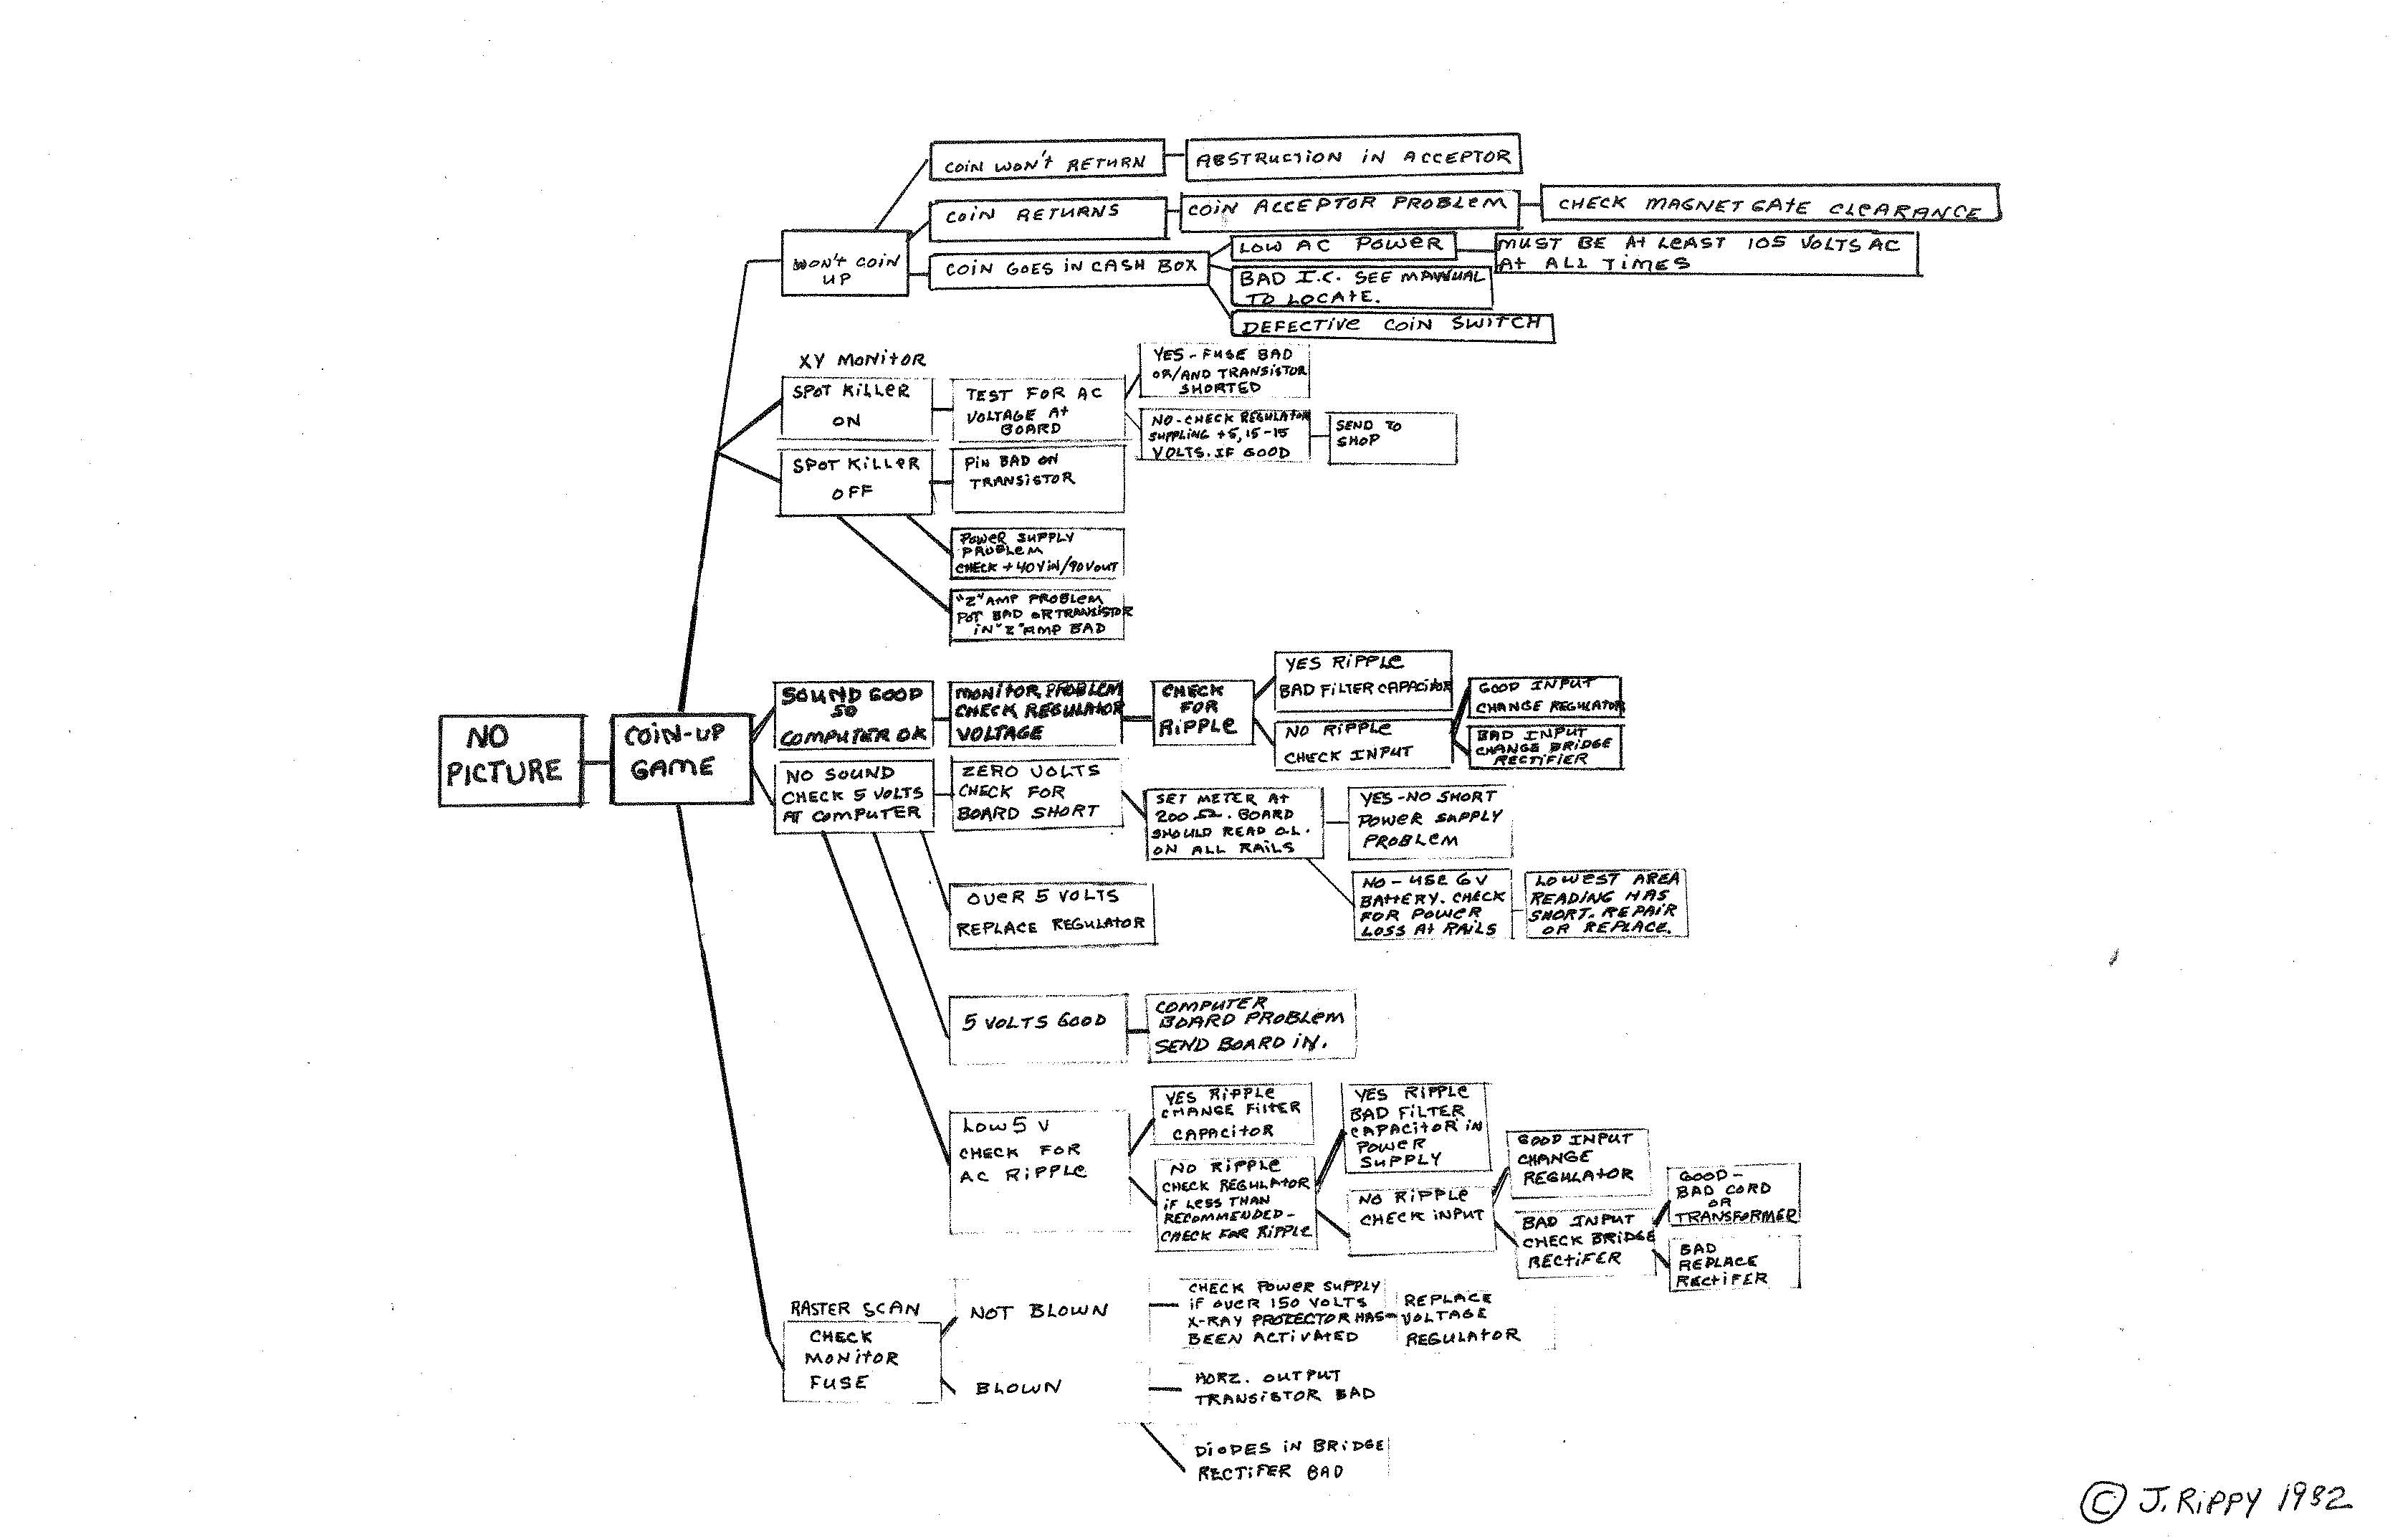 COIN WON'T RETURN
ABSTRUCTION IN ACCEPTOR
COIN RETURNS
COIN ACCEPTOR PROBLEM
CHECK MAGNET GATE CLEARANCE
WON'T COIN
UP
COIN GOES IN CASH BOX
LOW AC POWER
MUST BE At LEAST 105 VOLTS AC
At ALL TIMES
BAD I.C. SEE MANUAL
TO LOCATE.
DEFECTIVE COIN SWITCH
XY MONITOR
SPOT KILLER
ON
TEST FOR AC
VOLTAGE At
BOARD
YES - FUSE BAD
OR/AND TRANSISTOR
SHORTED
NO - CHECK REGULATOR
SUPPLING +5, 15 -15
VOLTS. IF GOOD
SEND TO
SHOP
SPOT KILLER
OFF
PIN BAD ON
TRANSISTOR
POWER SUPPLY
PROBLEM
CHECK +40V IN/90V OUT
"Z" AMP PROBLEM
POT BAD OR TRANSISTOR
IN "Z" AMP BAD
NO
PICTURE
COIN-UP
GAME
SOUND GOOD
SO
COMPUTER OK
MONITOR PROBLEM
CHECK REGULATOR
VOLTAGE
CHECK
FOR
RIPPLE
YES RIPPLE
BAD FILTER CAPACITOR
NO RIPPLE
CHECK INPUT
GOOD INPUT
CHANGE REGULATOR
BAD INPUT
CHANGE BRIDGE
RECTIFIER
NO SOUND
CHECK 5 VOLTS
AT COMPUTER
ZERO VOLTS
CHECK FOR
BOARD SHORT
SET METER At
200 Ω. BOARD
SHOULD READ O.L.
ON ALL RAILS
YES - NO SHORT
POWER SUPPLY
PROBLEM
NO - USE 6V
BATTERY. CHECK
FOR POWER
LOSS At RAILS
LOWEST AREA
READING HAS
SHORT. REPAIR
OR REPLACE.
OVER 5 VOLTS
REPLACE REGULATOR
5 VOLTS GOOD
COMPUTER
BOARD PROBLEM
SEND BOARD IN.
LOW 5 V
CHECK FOR
AC RIPPLE
YES RIPPLE
CHANGE FILTER
CAPACITOR
NO RIPPLE
CHECK REGULATOR
IF LESS THAN
RECOMMENDED -
CHECK FOR RIPPLE
YES RIPPLE
BAD FILTER
CAPACITOR IN
POWER
SUPPLY
NO RIPPLE
CHECK INPUT
GOOD INPUT
CHANGE
REGULATOR
BAD INPUT
CHECK BRIDGE
RECTIFER
GOOD -
BAD CORD
OR
TRANSFORMER
BAD
REPLACE
RECTIFER
RASTER SCAN
CHECK
MONITOR
FUSE
NOT BLOWN
CHECK POWER SUPPLY
IF OVER 150 VOLTS
X-RAY PROTECTOR HAS
BEEN ACTIVATED
REPLACE
VOLTAGE
REGULATOR
BLOWN
HORZ. OUTPUT
TRANSISTOR BAD
DIODES IN BRIDGE
RECTIFER BAD
© J. RIPPY 1982